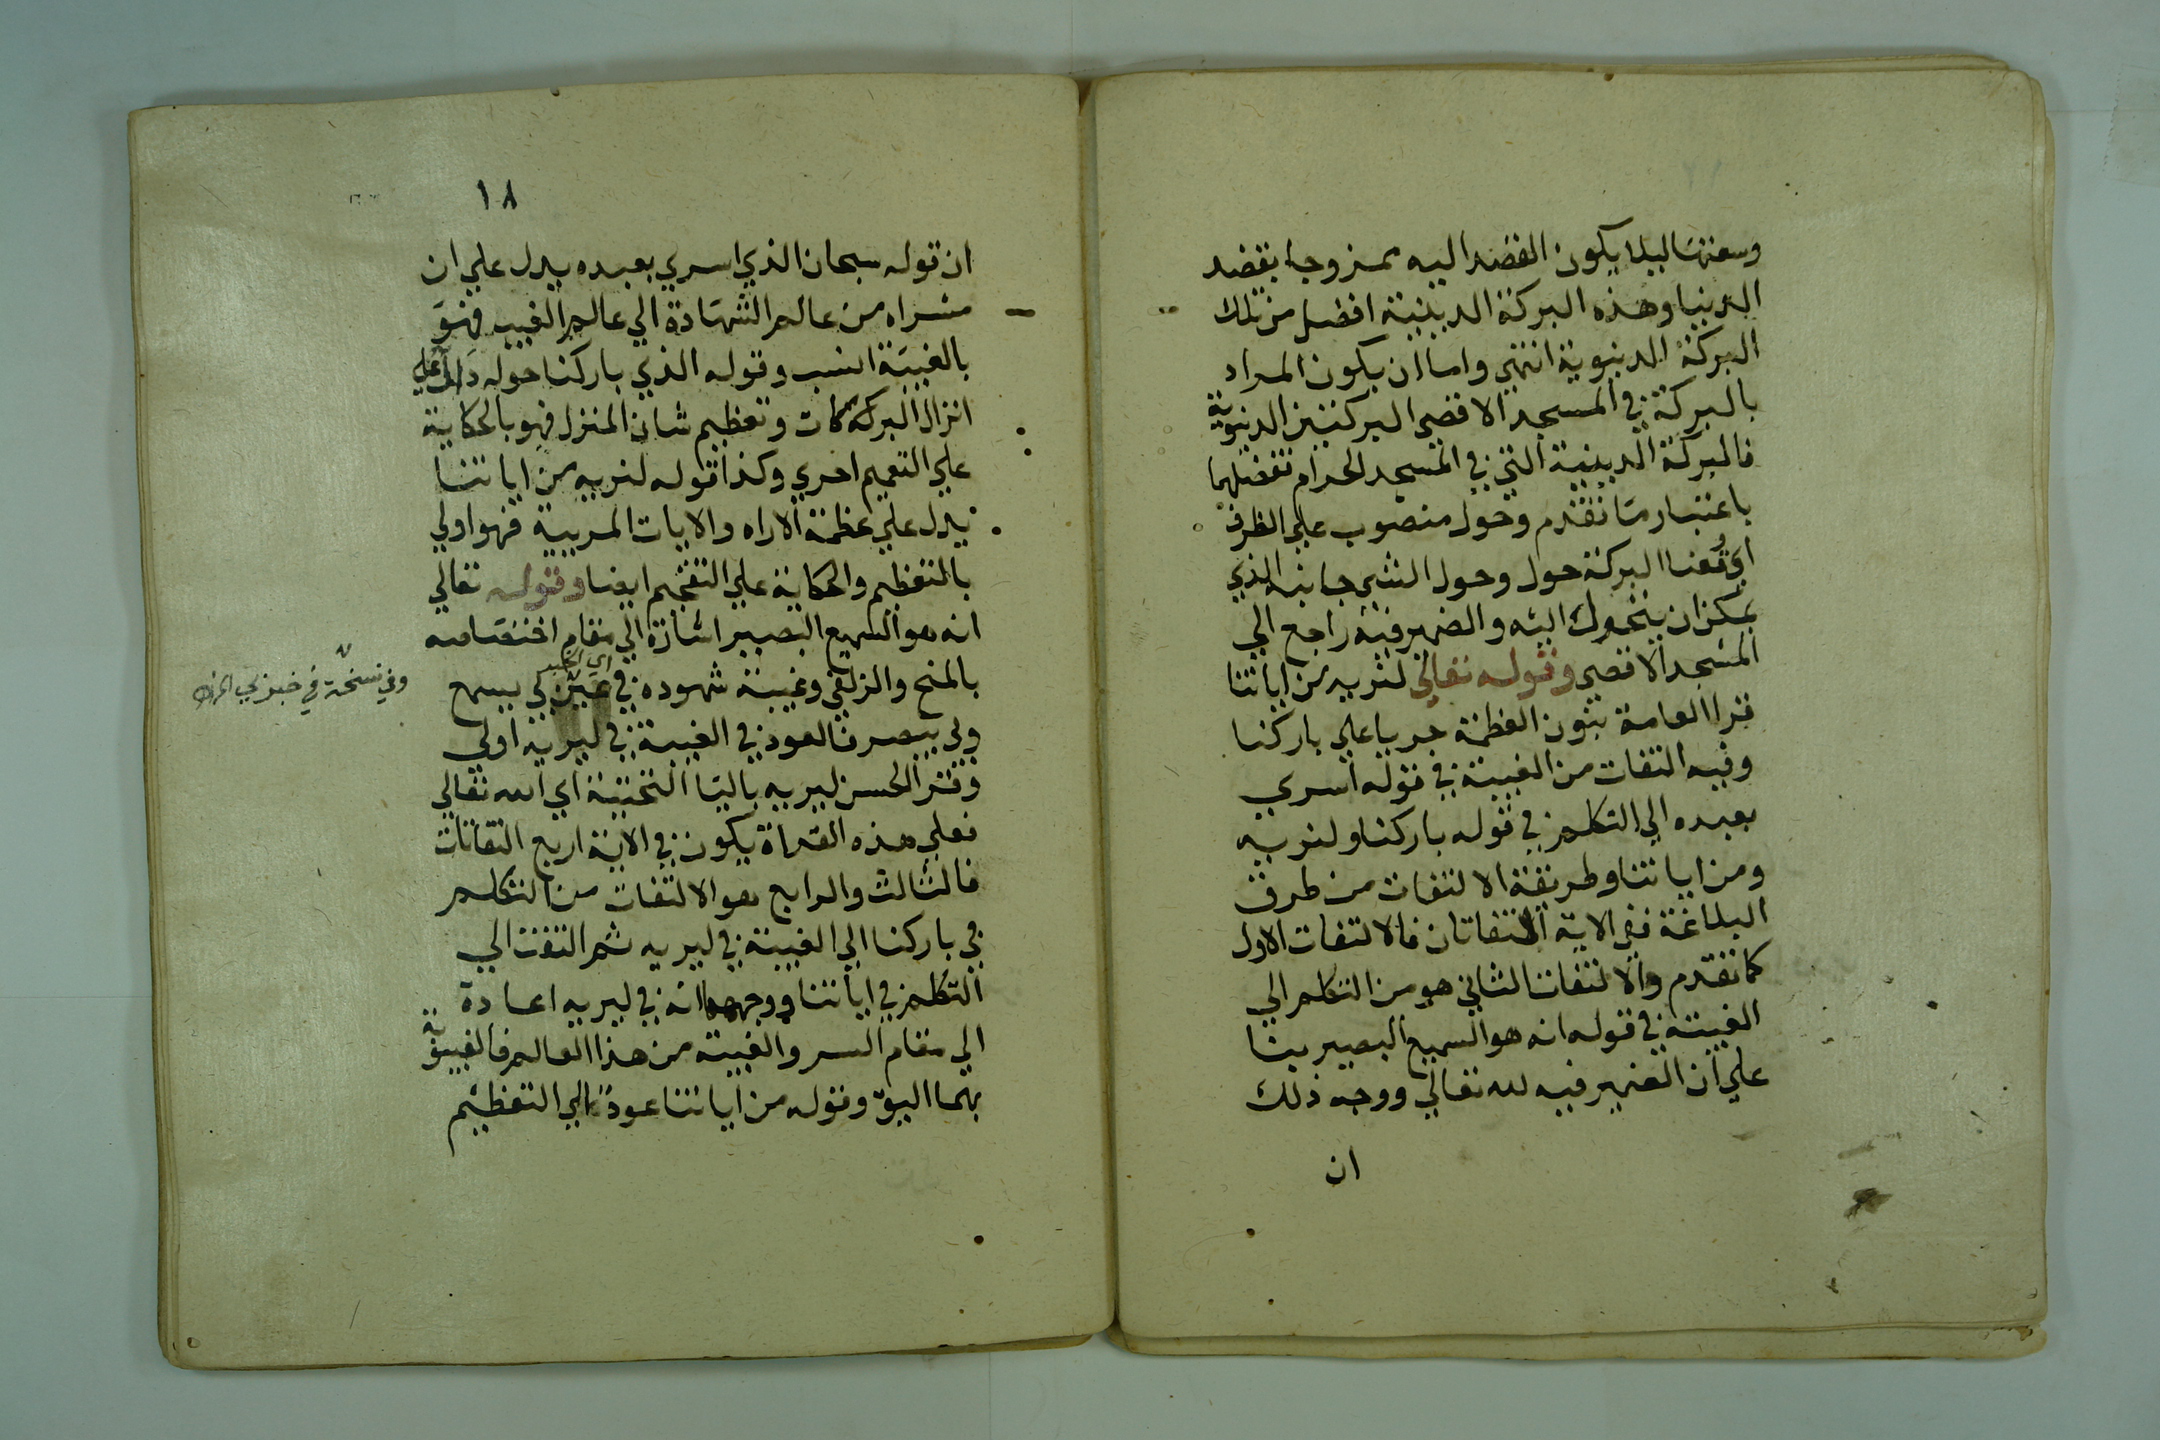 وسعتها ليلا يكون القصد اليه ممزوجا بقصد
الدنيا وهذه البركة الدينية افضل من تلك
البركة الدنيوية انتهي واما ان يكون المراد
بالبركة في المسجد الاقصي البركتين الدنيوية
فالبركة الدينية التي في المسجد الحرام تفضلهما
باعتبار ما تقدم وحول منصوب علي الظرف
اي وقعنا البركة حول وحول الشي جانبه الذي
يمكن ان يتحول اليه والضمير فيه راجع الي
المسجد الاقصي وقوله تعالي لنريه من اياتنا
قرا العامة بنون العظمة جريا علي باركنا
وفيه التفات من الغيبة في قوله اسري
بعبده الي التكلم في قوله باركنا ولنريه
ومن اياتنا وطريقة الالتفات من طرق
البلاغة ففي الاية التفاتان فالالتفات الاول
كما تقدم والالتفات الثاني هو من التكلم الي
الغيبة في قوله انه هو السميع البصير بنا
علي ان الضمير فيه لله تعالي ووجه ذلك
ان
١٨
ان قوله سبحان الذي اسري بعبده يدل علي ان
مسراه من عالم الشهادة الي عالم الغيب فهو
بالغيبة انسب وقوله الذي باركنا حوله دال علي
انزال البركات وتعظيم شان المنزل فهو بالحكاية
علي التعميم احري وكذا قوله لنريه من اياتنا
يدل علي عظمة الاراه والايات المريية فهو اولي
بالتعظيم والحكاية علي التفخيم ايضا وقوله تعالي
انه هو السميع البصير اشارة الي مقام اختصاصه
بالمنح والزلفي وغيبة شهوده في عين كي يسمع
اي العبد
وفي نسخة في خبر
وبي يبصر فالعود في الغيبة في ليريه اولي
وقرا الحسن ليريه باليا التحتية اي الله تعالي
فعلي هذه القراة يكون في الاية اربع التفاتات
فالثالث والرابع هو الالتفات من التكلم
في باركنا الي الغيبة في ليريه ثم التفت الي
التكلم في اياتنا ووجهه انه في ليريه اعادة
الي مقام السر والغيبة من هذا العالم فالغيبوبة
بهما اليق وقوله من اياتنا عود الي التعظيم